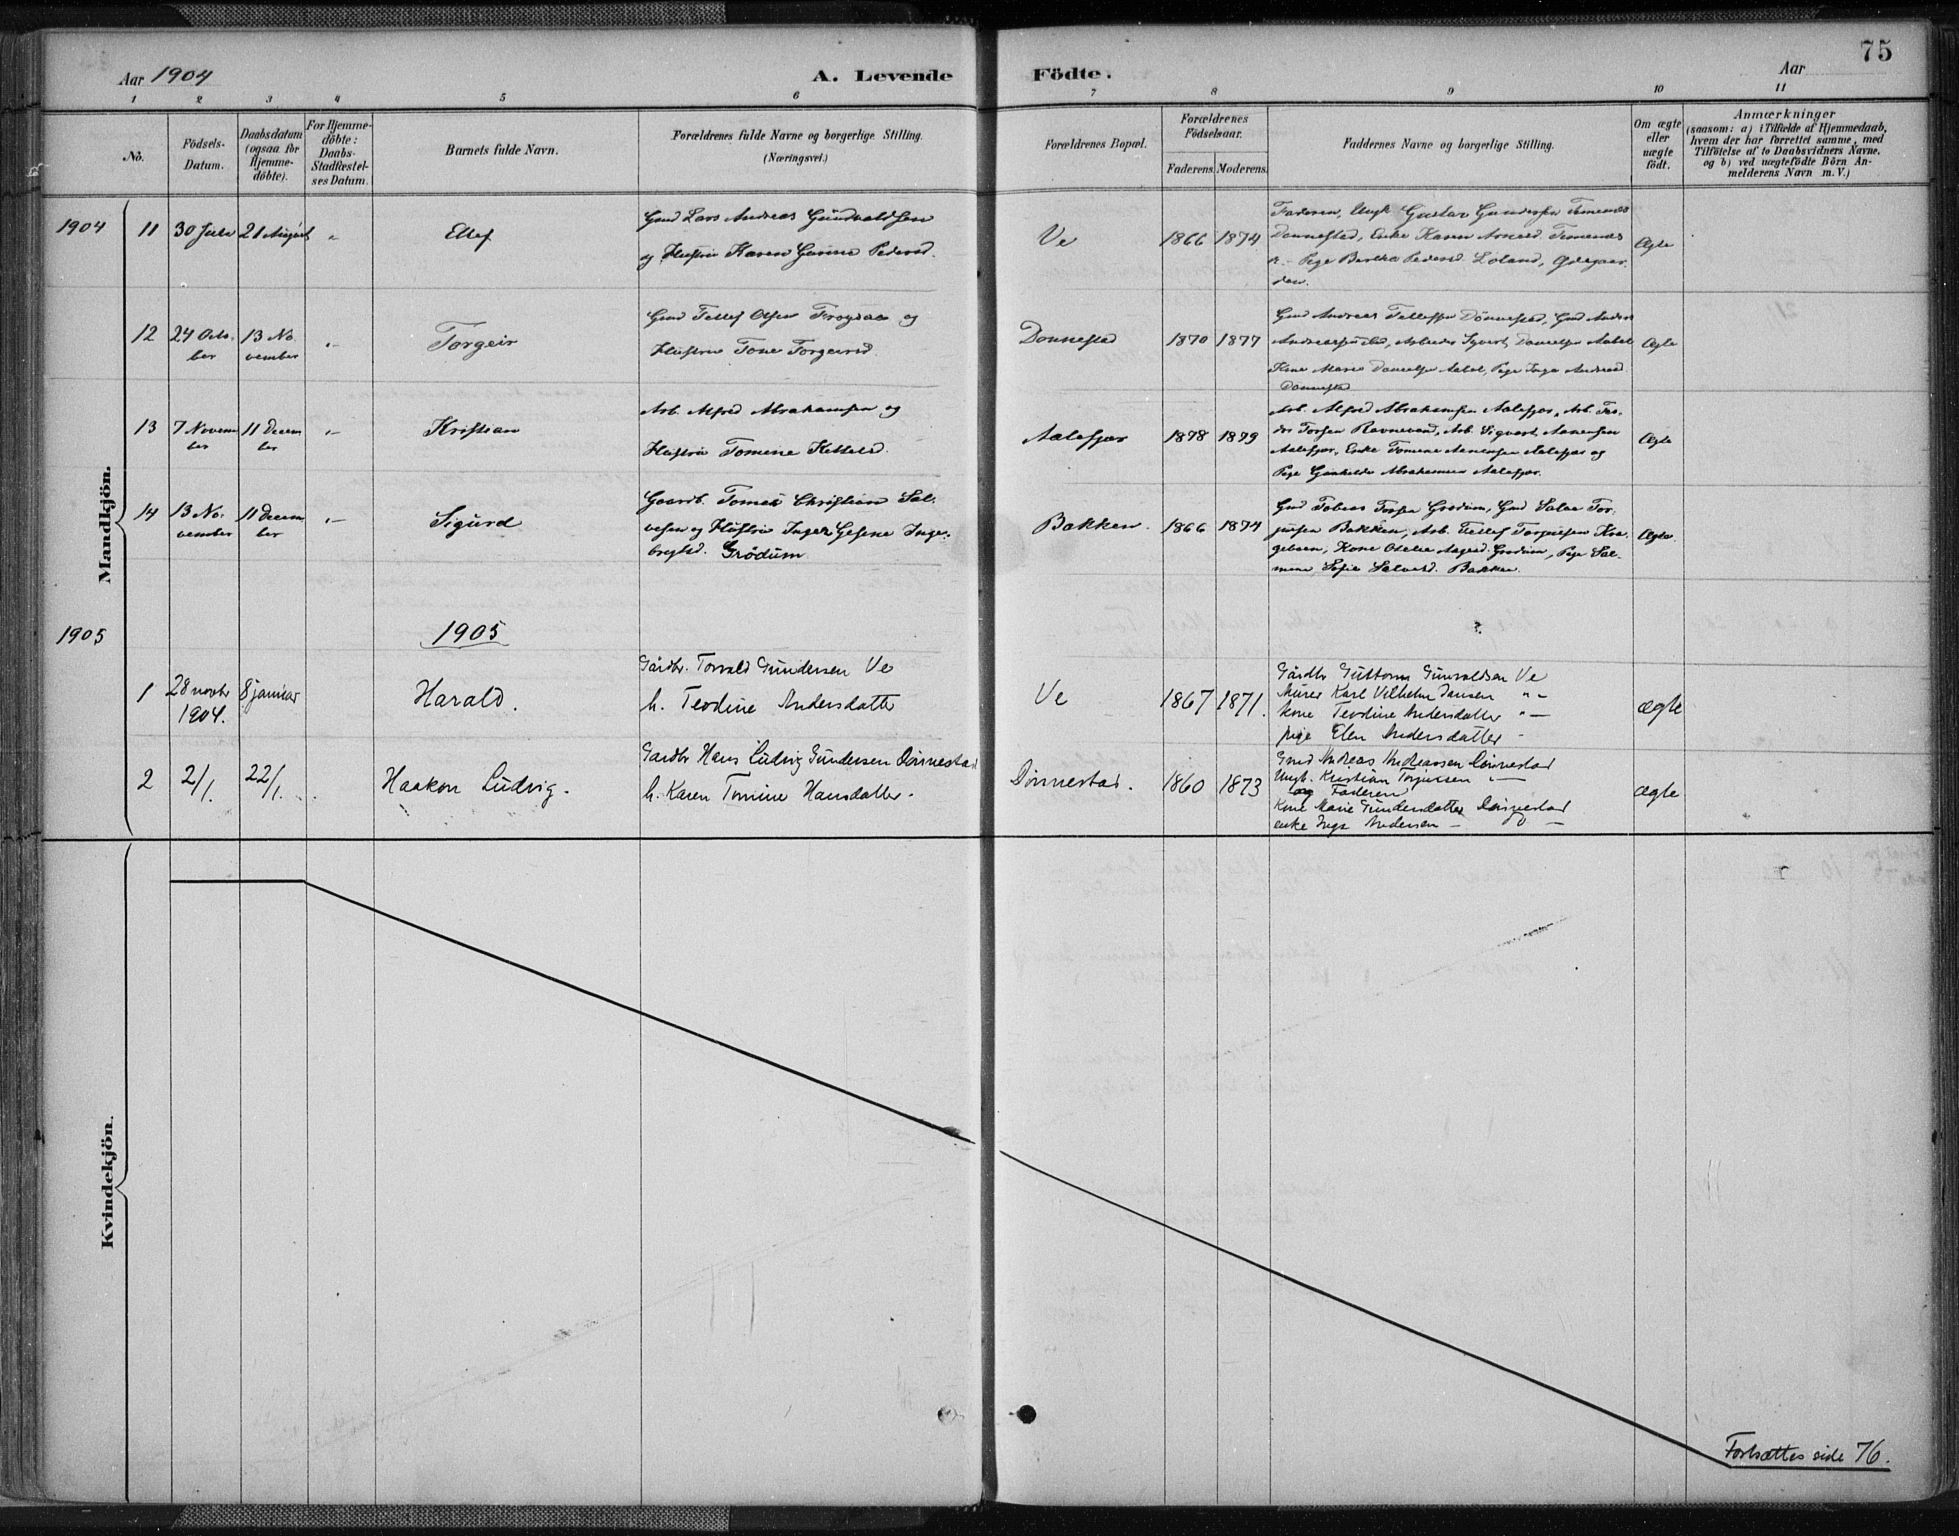 75
Aar 1904
A. Levende Födte.
Aar
1 2 3 4 5 6 7 8 9 10 11
No.
Födsels-
Datum.
Daabsdatum
(ogsaa for
Hjemme-
döbte).
For Hjemme-
döbte:
Daabs-
Stadfæstel-
ses Datum.
Barnets fulde Navn.
Forældrenes fulde Navne og borgerlige Stilling.
(Næringsvei.)
Forældrenes Bopæl.
Forældrenes
Födselsaar.
Faderens. Moderens.
Faddernes Navne og borgerlige Stilling.
Om ægte
eller
uægte
födt.
Anmærkninger
(saasom: a) i Tilfælde af Hjemmedaab,
hvem der har forrettet samme, med
Tilföielse af to Daabsvidners Navne,
og b) ved uægtefödte Börn An-
melderens Navn m. V.)
Mandkjön.
1904
11 30 Juli 21 August " Ellef
Gmd Lars Andreas Gundvaldsen
og Hustru Karen Gurine Pedersd.
Ve 1866 1874
Faderen, Ungk Gustav Gundersen Temenæs
Donnestad, Enke Karen Temenæs
Pige Bertha Pedersd. Löland,
Ægte
12 24 Octo-
ber
13 No-
vember
" Torgeir
Gmd Tellef Olsen og
Hustru Tone Torgeirsd.
Donnestad 1870 1877
Gmd Andreas Tellefsen Dönnestad, Gmd Anders
Arbeider Syvert Danielsen Aabel
Kone Maren Danielsen Aabel, Pige Inga Andreasd.
Dönnestad
Ægte
13 7 Novem
ber
11 Decem
ber
" Kristian
Arb. Alfred Abrahamsen og
Hustru Tomine Kittelsd.
Aalefjær 1878 1879
Arb. Alfred Abrahamsen Aalefjær, Arb.
Torsen Ravnevand, Arb. Sigvart Aanensen
Aalefjær, Enke Tomine Aanensen Aalefjær og
Pige Gunhilde Abrahamsen Aalefjær.
Ægte
14 13 No-
vember
11 Decem
ber
" Sigurd
Gaardb. Tomas Christian Sal-
vesen og Hustru Inger Gesine Inge-
brigtsd. Grödum
Bakken. 1866 1874
Gmd Tobias Torsen Grodum, Gmd Salve Tor-
jusen Bakken, Arb. Tellef Torjusen Kra-
geboen, Kone Otelie Aagesd. Grodum, Pige Sal-
mine Sofie Salvesd. Bakken.
Ægte.
1905
1905
1 28 novbr
1904.
8 januar
Harald.
Gårdbr. Torvald Gundersen Ve
h. Teodine Andersdatter
Ve 1867 1871.
Gårdbr Guttorm Gunvaldsen Ve
Murer Karl Vilhelm Jansen " -
kone Teodine Andersdatter " -
pige Elen Andersdatter -
ægte
2 2/1. 22/1. Haakon Ludvig.
Gardbr Hans Ludvig Gundersen Dönnestad
h. Karen Tomine Hansdatter.
Dönnestad. 1860 1873
Gmd Andreas Andreassen Dönnestad
Ungk. Kristian Torjussen " -
og Faderen
Kone Marie Gundersdatter Dönnestad
enke Inga Andersen - -
ægte
Kvindekjön.
Fortsættes side 76.